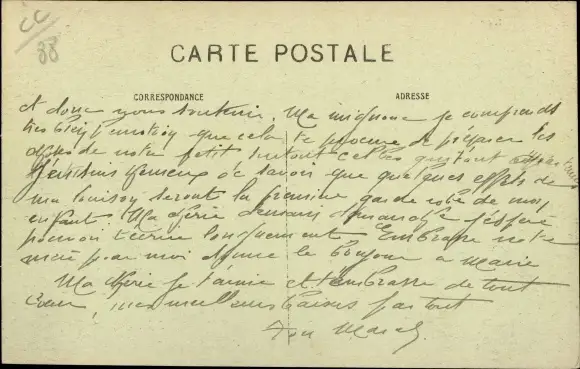 CC
88
CARTE POSTALE
CORRESPONDANCE
ADRESSE
et donc nous soutenir. Ma mignonne je comprends
très bien que cela te procure de préparer les
de notre petit surtout celles qui sont
heureux de savoir que quelques effets de
ma seront la première garde robe de mon
enfant. Ma chérie demain dimanche j'espère
pouvoir t'écrire longuement Embrasse notre
pour moi donne le bonjour à Marie
Ma chérie je t'aime et t'embrasse de tout
Cœur, mes meilleurs baisers partout
Ton Marcel